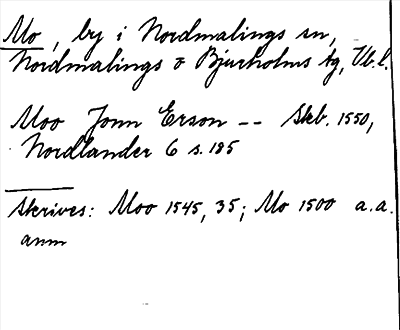 Mo, by i Nordmalings sn,
Nordmalings o Bjurholms tg, Vb.l.
Moo Jonn Erson -- Skb. 1550,
Nordlander 6 s. 185
Skrives: Moo 1545, 35; Mo 1500 a.a.
anm